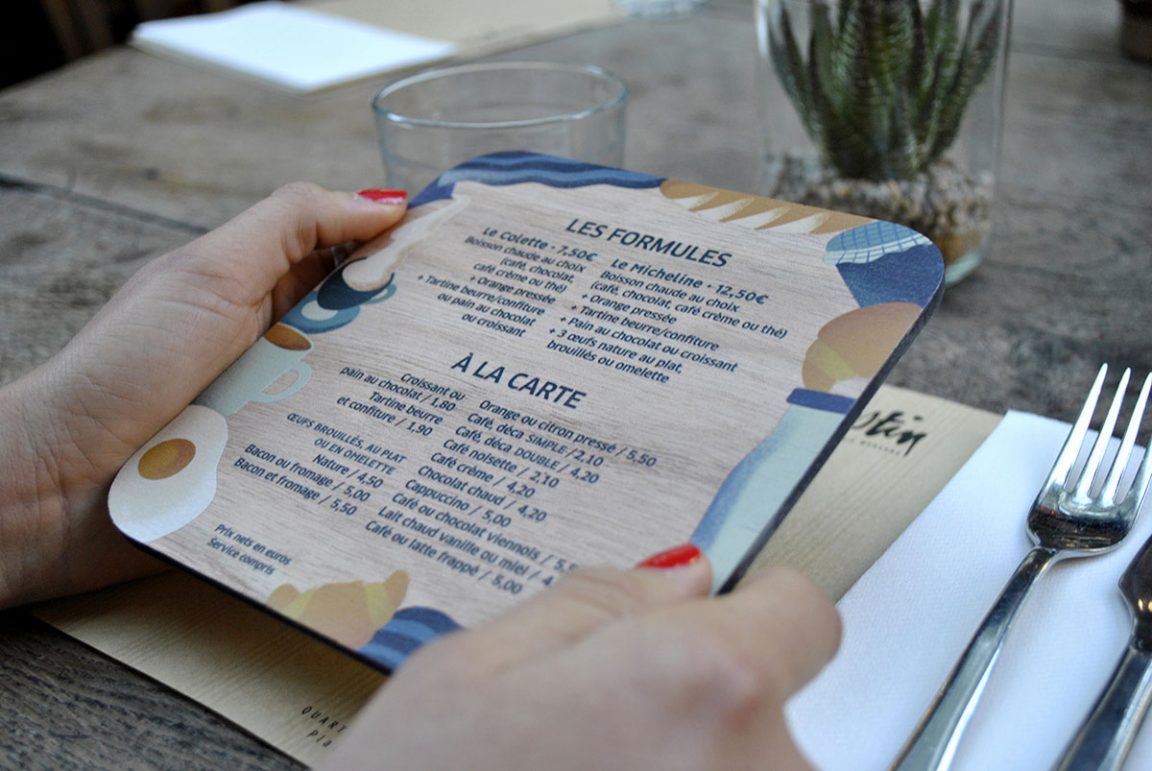 LES FORMULES
Le Colette • 7,50€
Boisson chaude au choix
(café, chocolat,
café crème ou thé)
+ Orange pressée
+ Tartine beurre/confiture
ou pain au chocolat
ou croissant
Le Micheline • 12,50€
Boisson chaude au choix
(café, chocolat, café crème ou thé)
+ Orange pressée
+ Tartine beurre/confiture
+ Pain au chocolat ou croissant
+ 3 œufs nature au plat,
brouillés ou omelette
À LA CARTE
Croissant ou
pain au chocolat / 1,80
Tartine beurre
et confiture / 1,90
ŒUFS BROUILLÉS, AU PLAT
OU EN OMELETTE
Nature / 4,50
Bacon ou fromage / 5,00
Bacon et fromage / 5,50
Orange ou citron pressé / 5,50
Café, déca SIMPLE / 2,10
Café, déca DOUBLE / 4,20
Café noisette / 2,10
Café crème / 4,20
Chocolat chaud / 4,20
Cappuccino / 5,00
Café ou chocolat viennois / 5,5
Lait chaud vanille ou miel / 4
Café ou latte frappé / 5,00
Prix nets en euros
Service compris
QUART